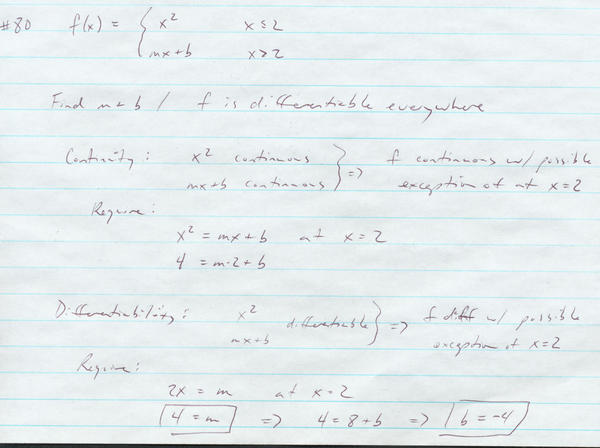 #80 f(x) = { x² x ≤ 2
mx+b x > 2
Find m + b / f is differentiable everywhere
Continuity : x² continuous } => f continuous w/ possible
mx+b continuous exception of at x = 2
Require :
x² = mx + b at x = 2
4 = m·2 + b
Differentiability : x² differentiable } => f diff w/ possible
mx+b exception of x = 2
Require :
2x = m at x = 2
4 = m => 4 = 8 + b => b = -4